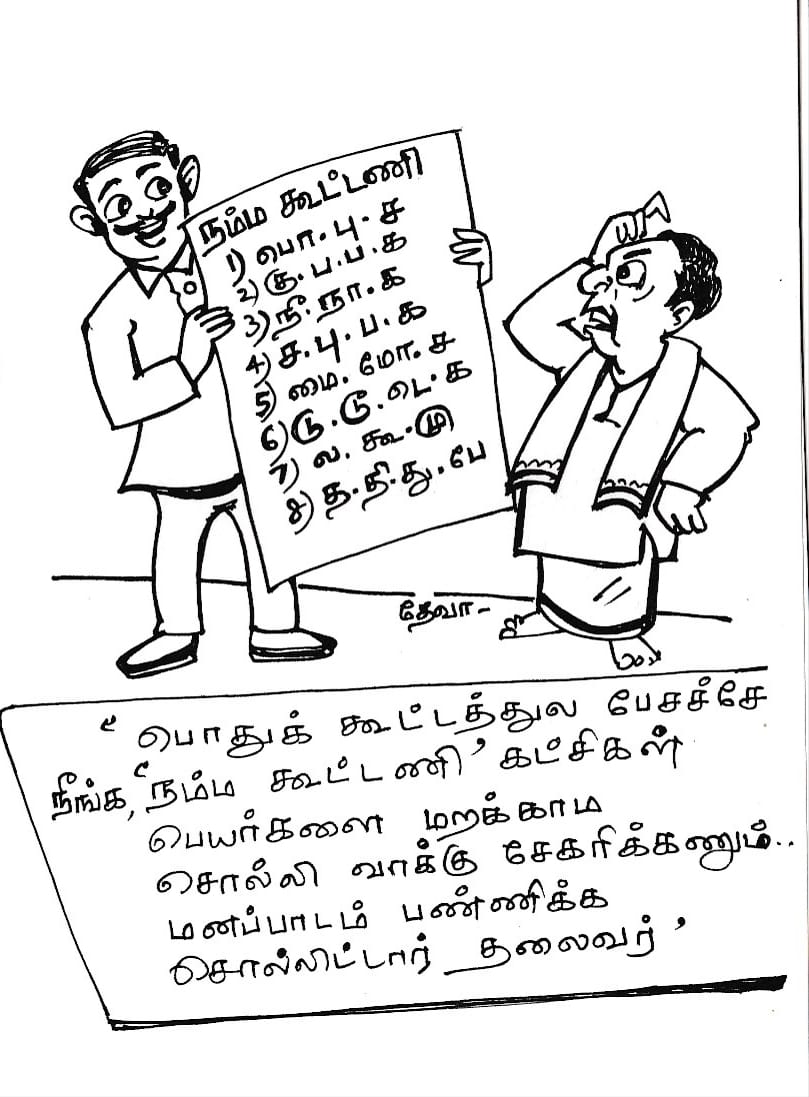 நம்ம கூட்டணி
1) பொ. பு. ச
2) கு. ப. ப. க
3) நீ. நா. க
4) ச. பு. ப. க
5) மை. மோ. ச
6) டு. டூ. டெ. க
7) ல. கூ. மு
8) த. தி. து. பே
தேவா -
‘ பொதுக் கூட்டத்துல பேசச்சே
நீங்க, ‘நம்ம கூட்டணி’ கட்சிகள்
பெயர்களை மறக்காம
சொல்லி வாக்கு சேகரிக்கணும்..
மனப்பாடம் பண்ணிக்க
சொல்லிட்டார் தலைவர் ’